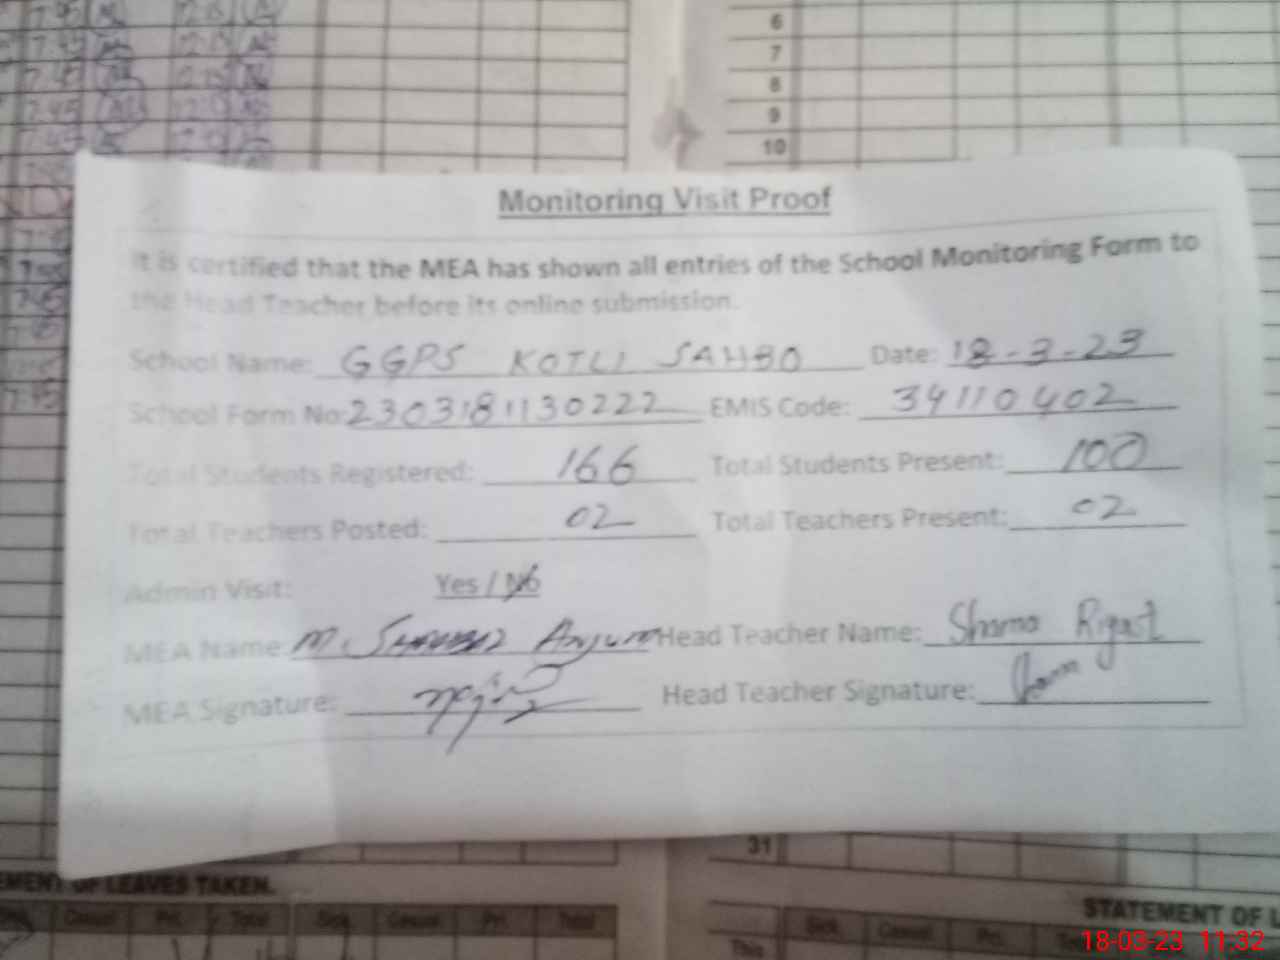 6
7
8
9
10
Monitoring Visit Proof
It is certified that the MEA has shown all entries of the School Monitoring Form to
the Head Teacher before its online submission.
School Name: GGPS KOTLI SAHBO Date: 18-3-23
School Form No: 2303181130222 EMIS Code: 34110402
Total Students Registered: 166 Total Students Present: 100
Total Teachers Posted: 02 Total Teachers Present: 02
Admin Visit: Yes / No
MEA Name: M. Anjum Head Teacher Name: Shama
MEA Signature: Head Teacher Signature:
31
EMENT OF LEAVES TAKEN.
STATEMENT OF L
Casual Pri. Total Sick Casual Pri. Total
Sick Casual Pri.
This
18-03-23 11:32